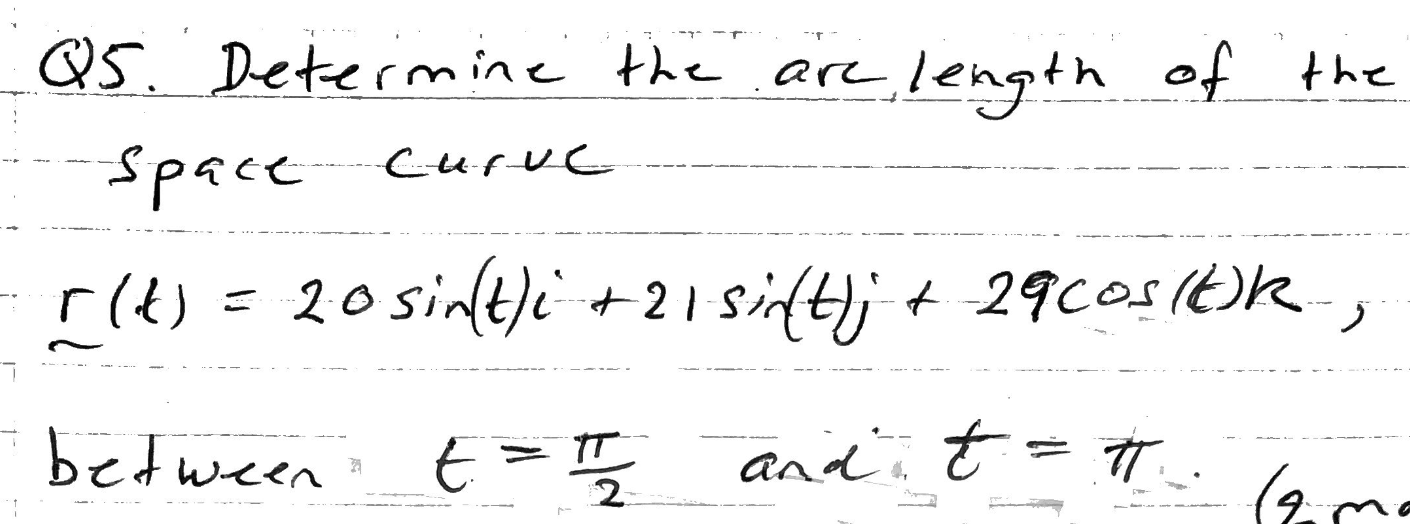 Q5. Determine the arc length of the
space curve
r(t) = 20sin(t)i + 21sin(t)j + 29cos(t)k,
between t = π/2 and t = π.